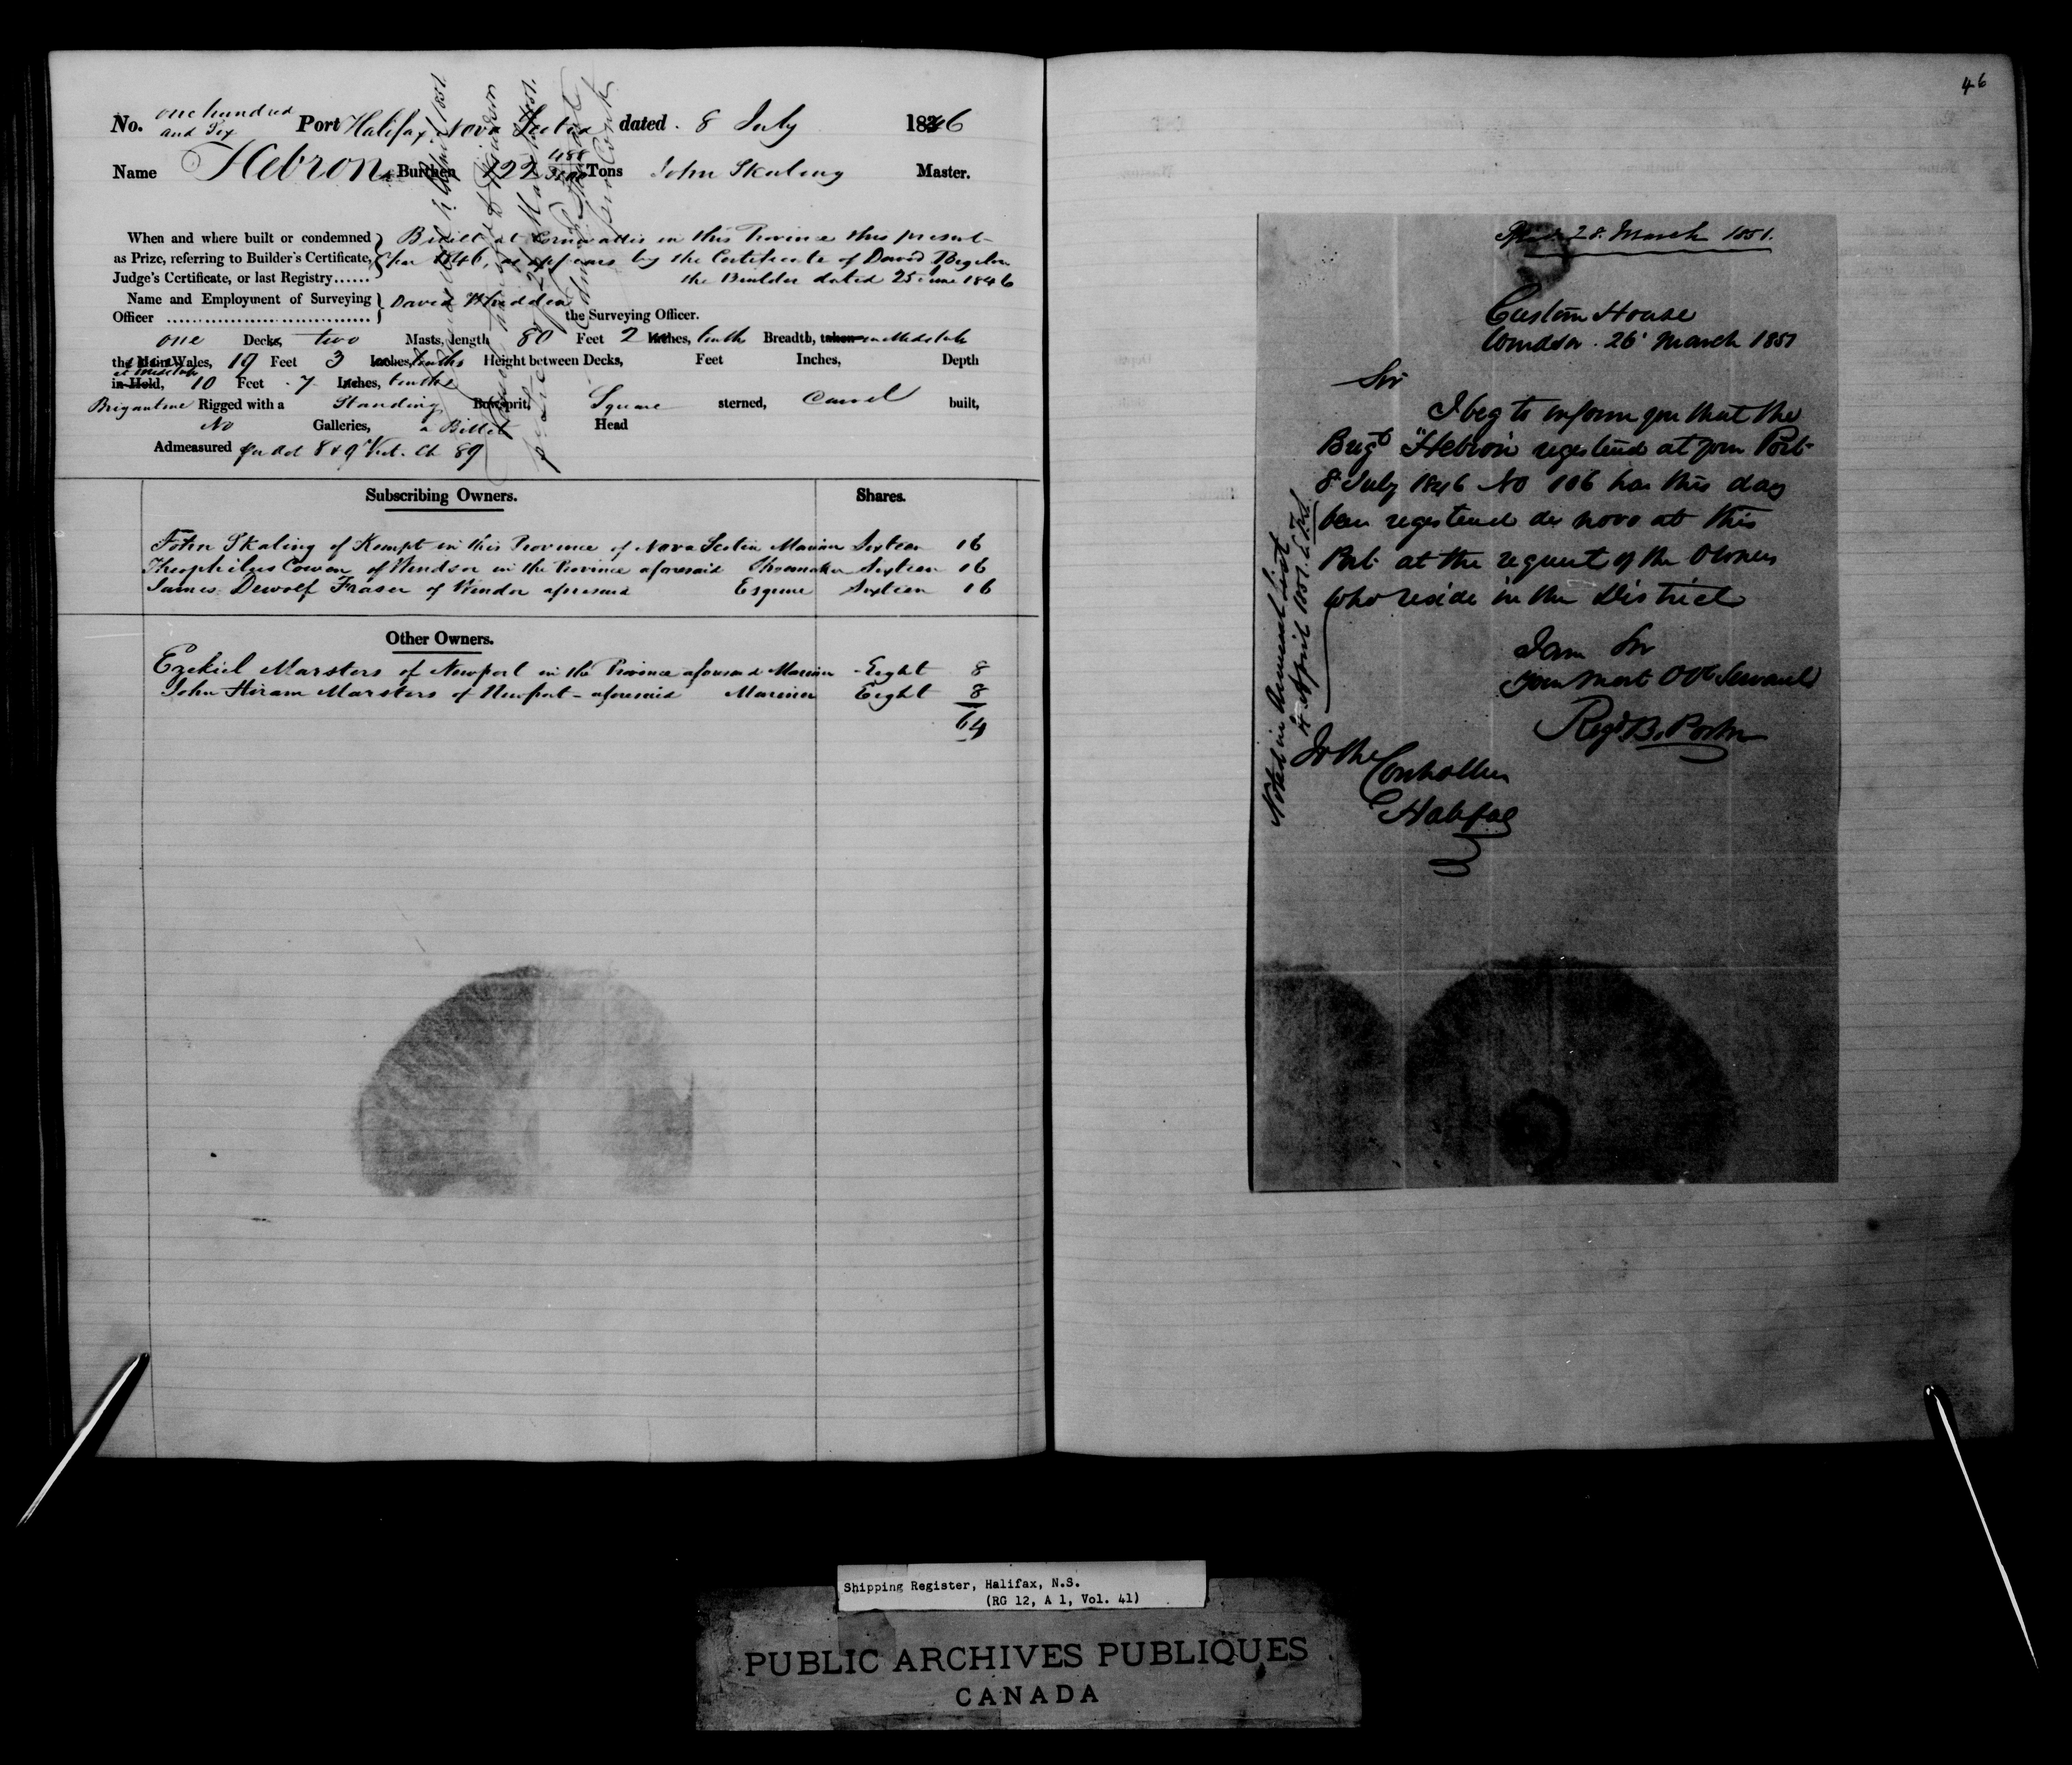 No. one hundred and Six Port Halifax, Nova Scotia dated 8 July 1846
Name Hebron Burthen 122 Tons John Skaling Master.
When and where built or condemned as Prize, referring to Builder's Certificate, Judge's Certificate, or last Registry......
Built at Cornwallis in this Province this present
year 1846, as appears by the Certificate of David Bigelow
the Builder dated 25 June 1846
Name and Employment of Surveying Officer
David Whidden
the Surveying Officer.
one Decks, two Masts, length 80 Feet 2 Inches, tenths Breadth, taken
the Main Wales, 19 Feet 3 Inches, tenths Height between Decks, Feet Inches, Depth
in Hold, 10 Feet 7 Inches, tenths
Brigantine Rigged with a Standing Bowsprit, Square sterned, Carvel built,
No Galleries, a Billet Head
Admeasured per Act 8 & 9 Vict. Ch 89
Subscribing Owners. Shares.
John Skaling of Kempt in this Province of Nova Scotia Mariner Sixteen 16
Theophilus Cowen of Windsor in the Province aforesaid Shoemaker Sixteen 16
James Dewolf Fraser of Windsor aforesaid Esquire Sixteen 16
Other Owners.
Ezekiel Marsters of Newport in the Province aforesaid Mariner Eight 8
John Hiram Marsters of Newport aforesaid Mariner Eight 8
64
46
28 March 1851.
Custom House
Windsor 26 March 1851
Sir
I beg to inform you that the
Brigt "Hebron" registered at your Port
8 July 1846 No 106 has this day
been registered de novo at this
Port at the request of the Owners
who reside in the District
I am Sir
your most Obt Servant
Regd B. Porter
To the
Controller
Halifax
Noted in Annual List
4 April 1851
Shipping Register, Halifax, N.S.
(RG 12, A 1, Vol. 41)
PUBLIC ARCHIVES PUBLIQUES
CANADA